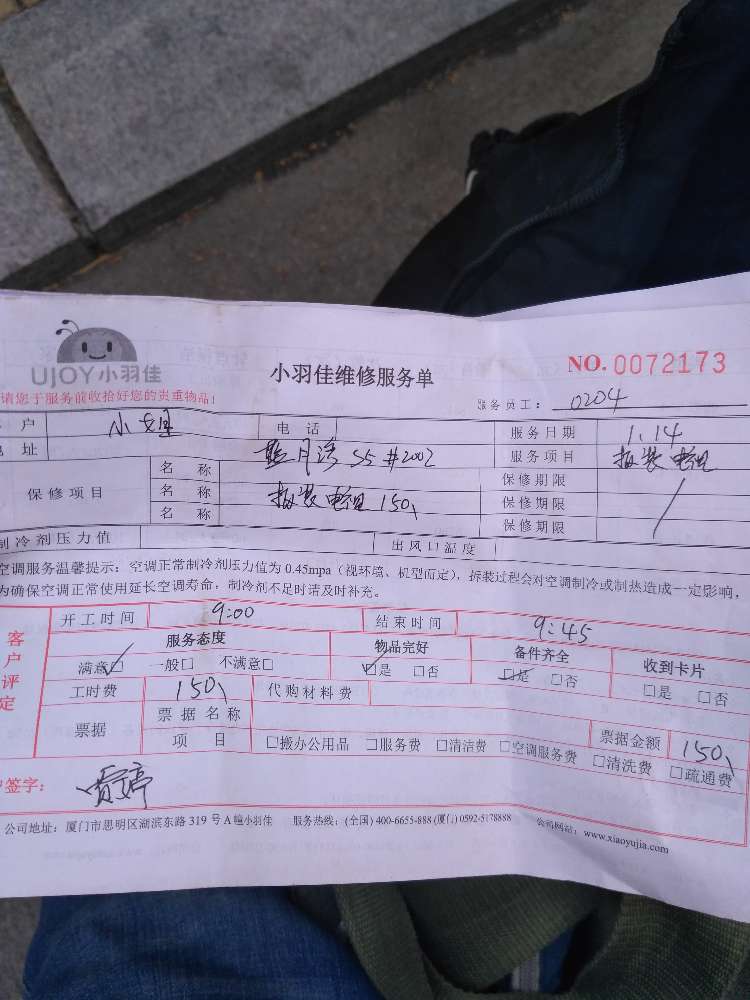 UJOY小羽佳
小羽佳维修服务单
NO. 0072173
请您于服务前收拾好您的贵重物品!
服务员工: 0204
户 小 电话 服务日期 1.14
地址 月 S5 #2002 服务项目 拆装
保修项目 名称 保修期限
名称 拆装 150 保修期限
名称 保修期限
制冷剂压力值 出风口温度
空调服务温馨提示: 空调正常制冷剂压力值为 0.45mpa (视环境、机型而定), 拆装过程会对空调制冷或制热造成一定影响,
为确保空调正常使用延长空调寿命, 制冷剂不足时请及时补充。
客户评定
开工时间 9:00 结束时间 9:45
服务态度 物品完好 备件齐全 收到卡片
满意□ 一般□ 不满意□ □是 □否 □是 □否 □是 □否
工时费 150 代购材料费
票据 票据名称 票据金额 150
项目 □搬办公用品 □服务费 □清洁费 □空调服务费 □清洗费 □疏通费
户签字: 婷
公司地址: 厦门市思明区湖滨东路 319 号 A 幢小羽佳 服务热线: (全国) 400-6655-888 (厦门) 0592-5178888 公司网站: www.xiaoyujia.com